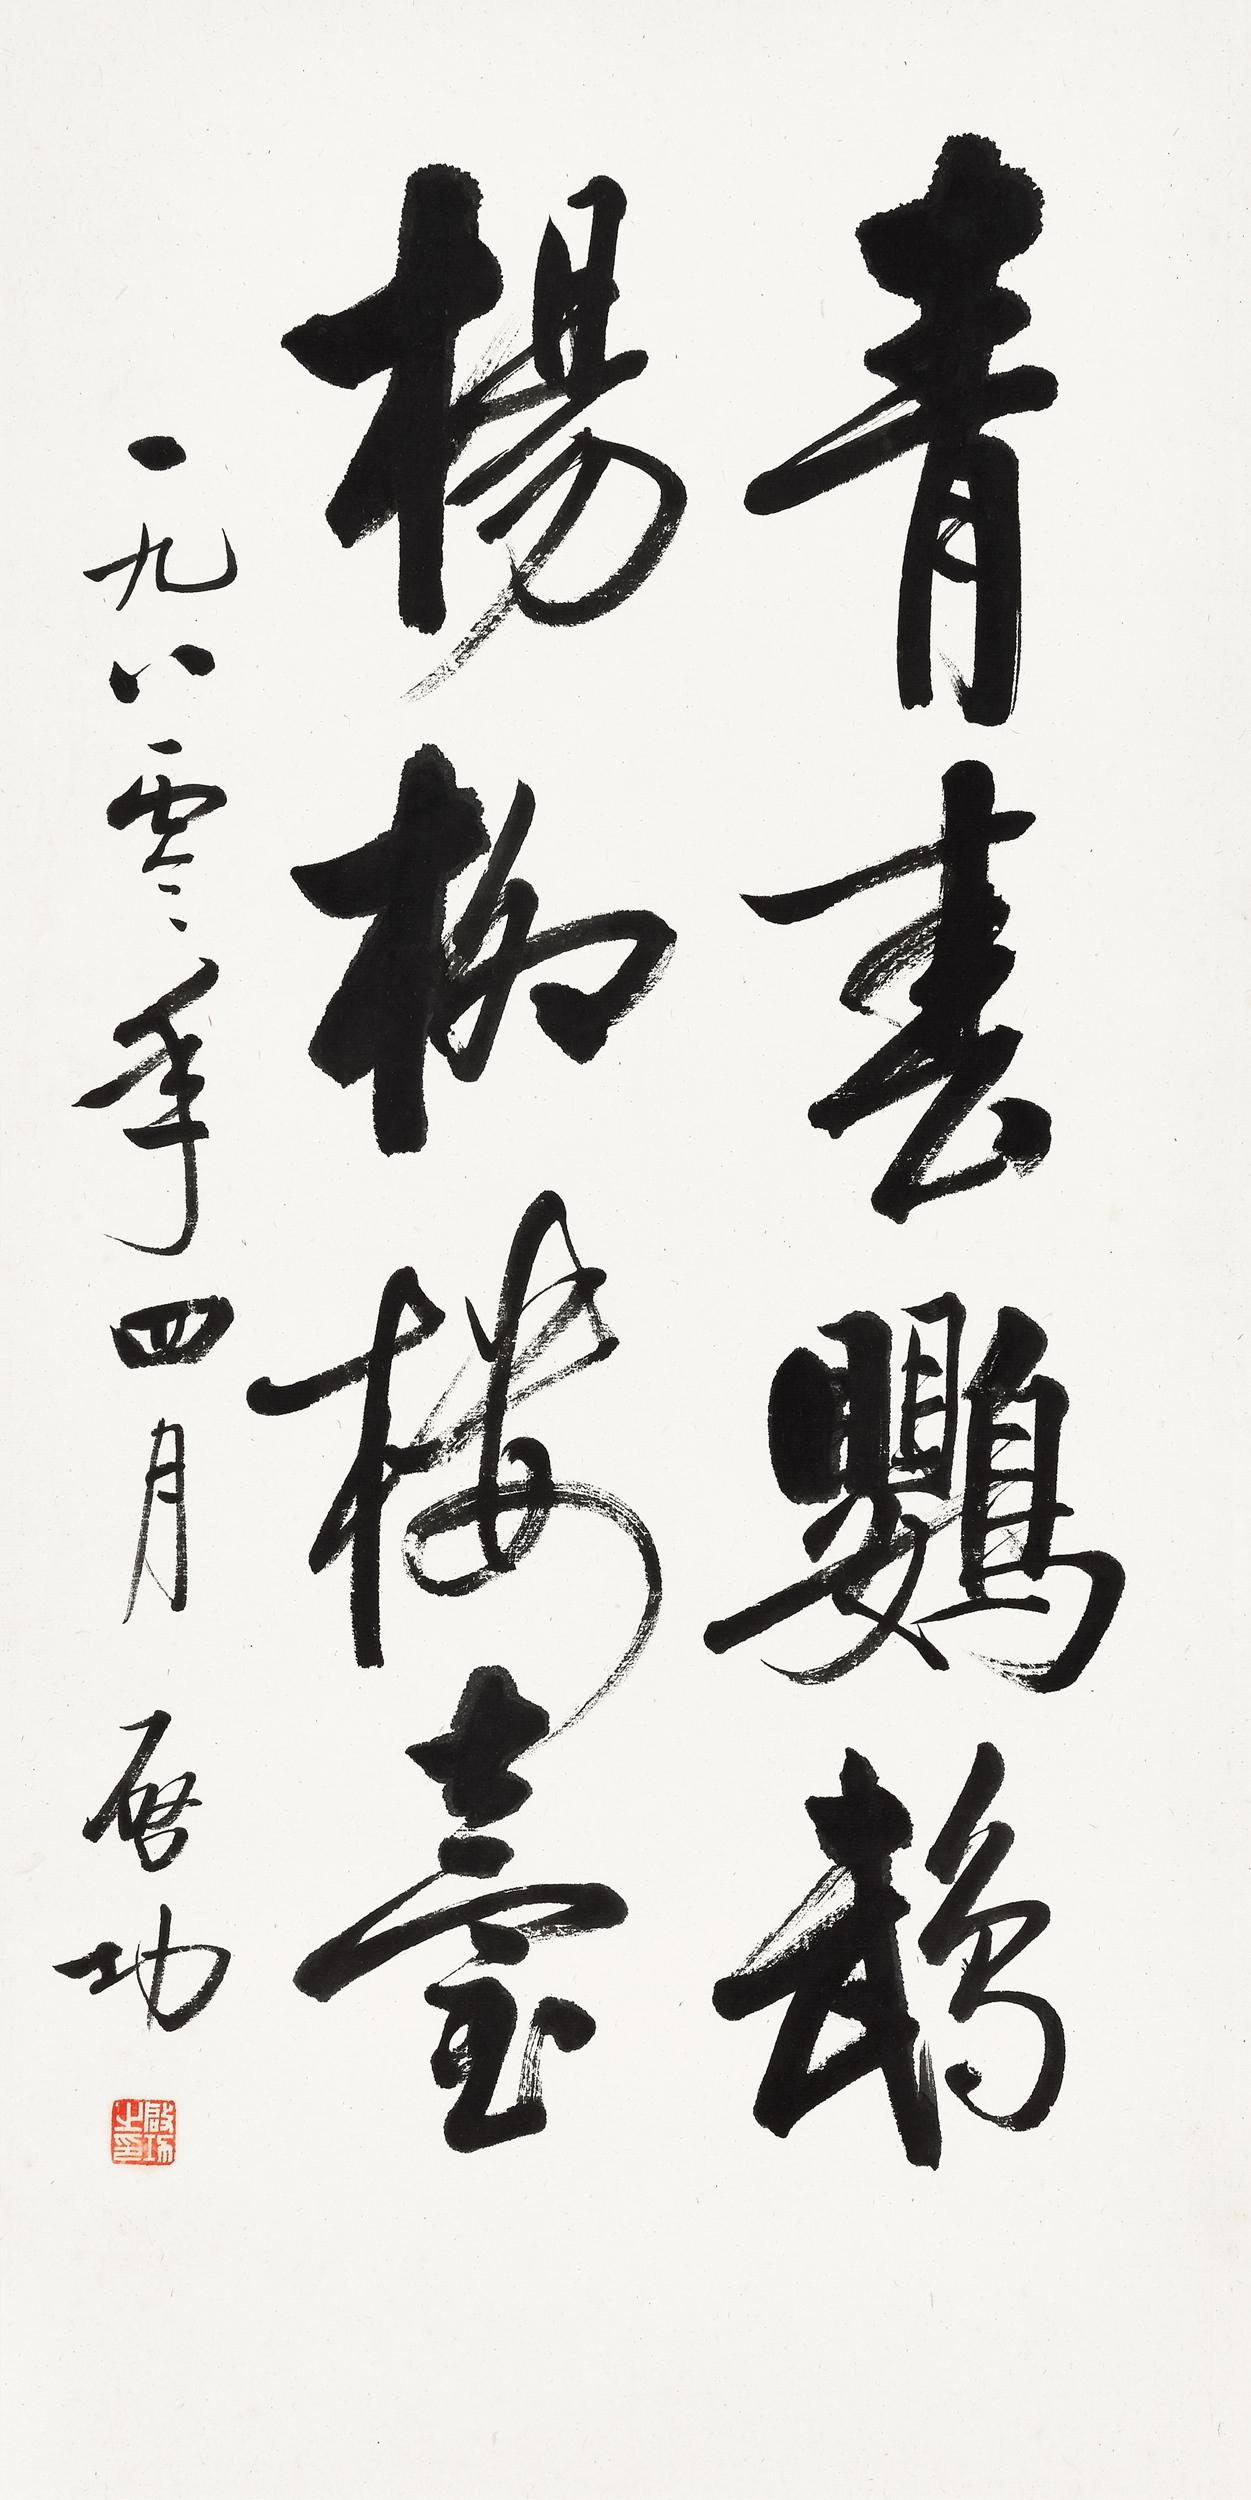 青春鸚鵡
楊柳樓臺
一九八零年四月 启功
啟功之印